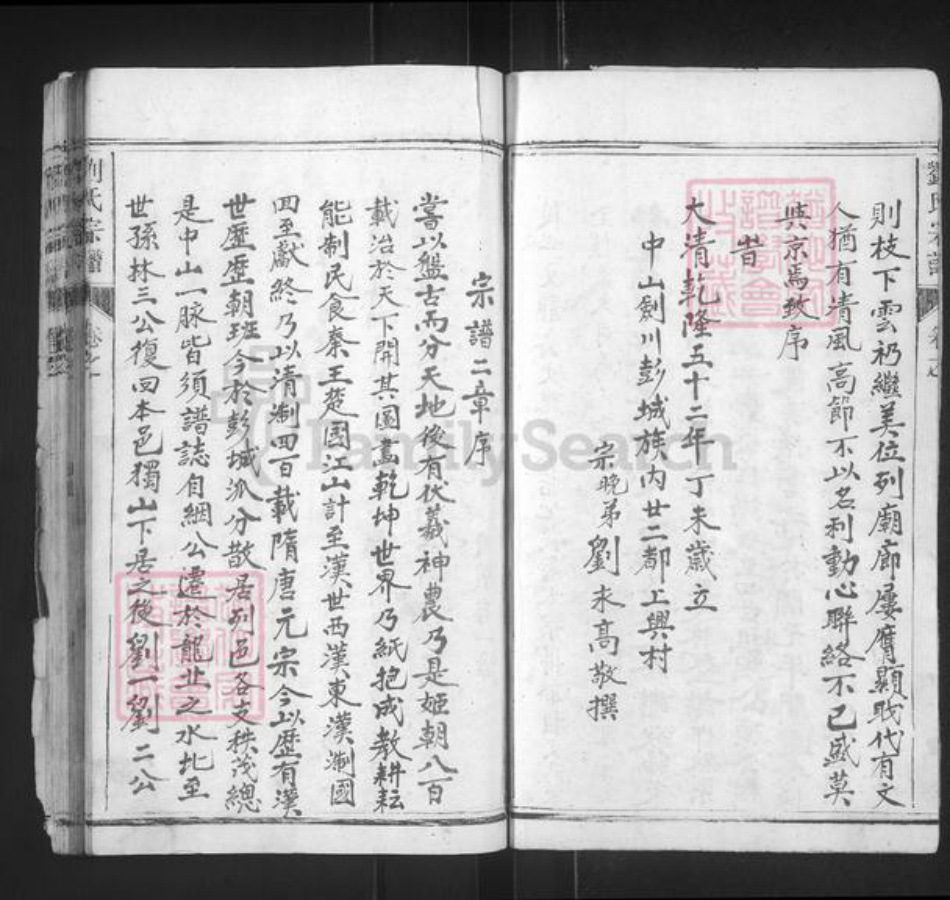 則枝下雲礽繼美位列廟廊屢膺顯戝代有文
人猶有清風高節不以名利動心聯絡不已盛莫
與京焉致序
昔
大清乾隆五十二年丁未歲立
中山劍川彭城族内廿二都上興村
宗晚弟劉未高敬撰
宗譜二章序
嘗以盤古而分天地後有伏羲神農乃是姬朝八百
載治於天下開其圖畵乾坤世界乃紙抱成教耕耘
能制民食秦王楚國江山計至漢世西漢東漢淛國
回至獻終乃以清淛四百載隋唐元宗今以歷有漢
世歷歷朝班今於彭城派分散居列邑各支秩茂總
是中山一脉皆須譜誌自綱公遷於龍丘之水北至
世孫林三公復回本邑獨山下居之後劉一劉二公
劉氏宗譜
卷之
FamilySearch